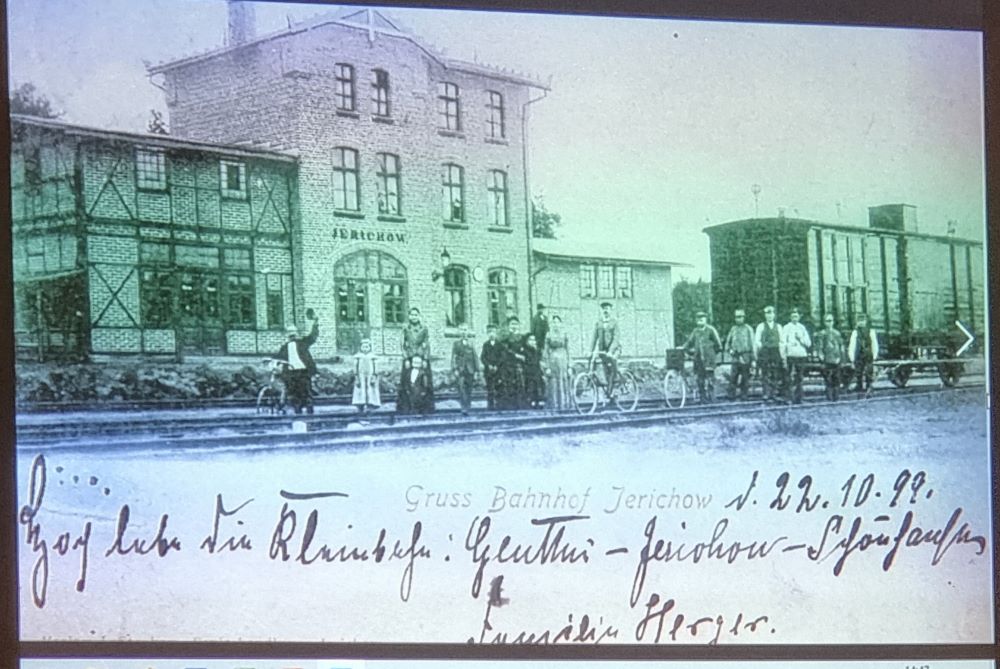 JERICHOW
Gruss Bahnhof Jerichow d. 22.10.99.
Hoch lebe die Kleinbahn: Genthin - Jerichow - Schönhausen
Familie Herger.